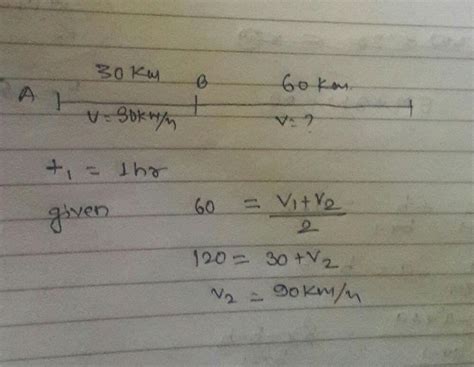 30 Km B 60 Km
A
V=30km/h V=?
t₁ = 1hr
given 60 = V₁+V₂/2
120 = 30+V₂
V₂ = 90km/h